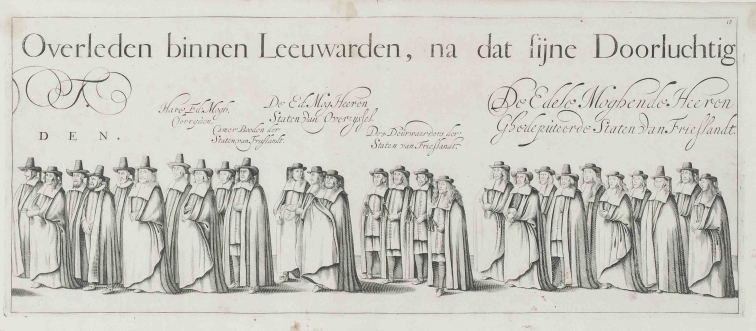 18
Overleden binnen Leeuwarden, na dat sijne Doorluchtig
T.
DEN.
Hare Ed. Mogh.
Camer Booden der
Staten van Frieslandt.
De Ed. Mog. Heeren
Staten van Overyssel.
Des Deurwaerders der
Staten van Frieslandt.
De Edele Moghende Heeren
Ghedeputeerde Staten van Frieslandt.